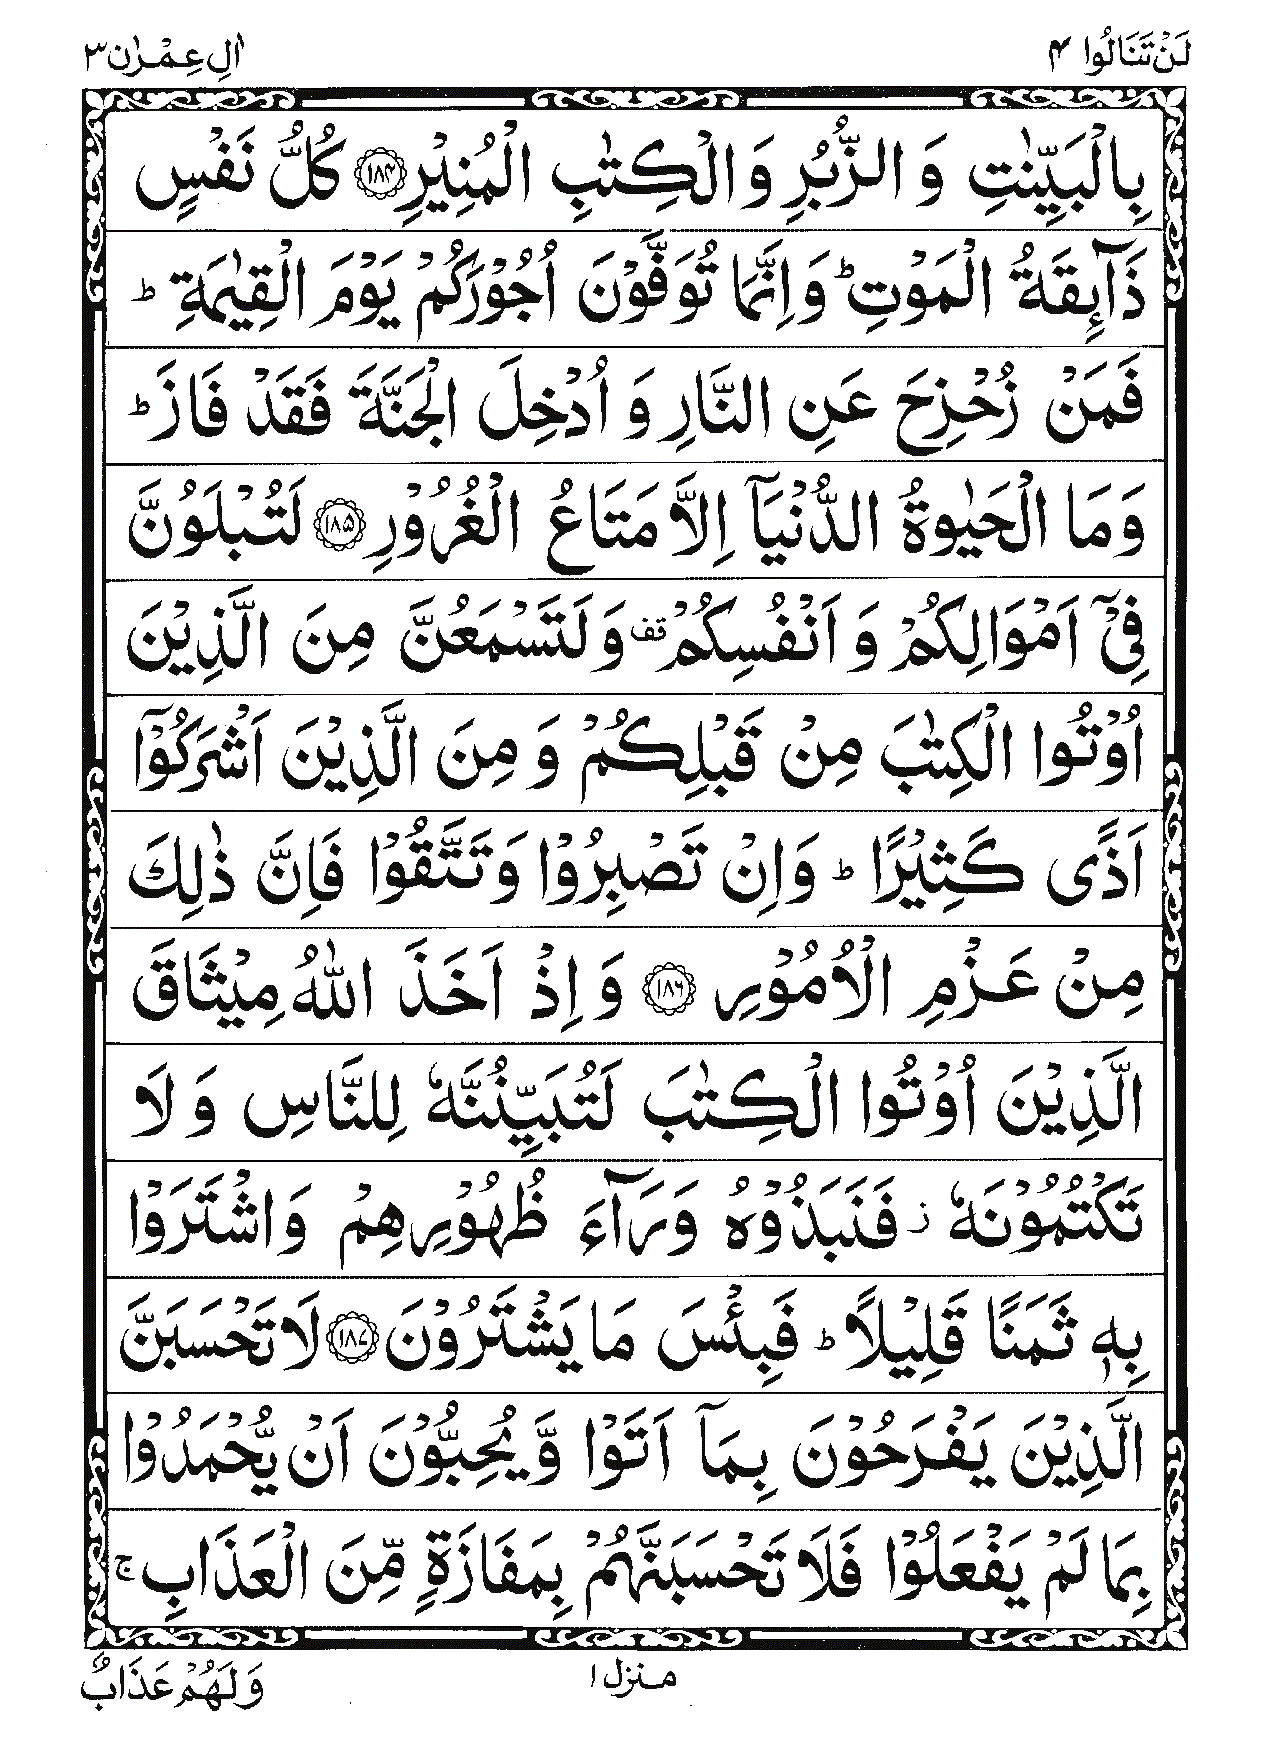 لَنْ تَنَالُوا ۴
اٰلِ عِمْرٰن ۳
بِالْبَيِّنٰتِ وَ الزُّبُرِ وَ الْكِتٰبِ الْمُنِيْرِ ﴿۱۸۴﴾ كُلُّ نَفْسٍ
ذَآئِقَةُ الْمَوْتِ ؕ وَ اِنَّمَا تُوَفَّوْنَ اُجُوْرَكُمْ يَوْمَ الْقِيٰمَةِ ؕ
فَمَنْ زُحْزِحَ عَنِ النَّارِ وَ اُدْخِلَ الْجَنَّةَ فَقَدْ فَازَ ؕ
وَ مَا الْحَيٰوةُ الدُّنْيَاۤ اِلَّا مَتَاعُ الْغُرُوْرِ ﴿۱۸۵﴾ لَتُبْلَوُنَّ
فِیْۤ اَمْوَالِكُمْ وَ اَنْفُسِكُمْ قف وَ لَتَسْمَعُنَّ مِنَ الَّذِيْنَ
اُوْتُوا الْكِتٰبَ مِنْ قَبْلِكُمْ وَ مِنَ الَّذِيْنَ اَشْرَكُوْۤا
اَذًی كَثِيْرًا ؕ وَ اِنْ تَصْبِرُوْا وَ تَتَّقُوْا فَاِنَّ ذٰلِكَ
مِنْ عَزْمِ الْاُمُوْرِ ﴿۱۸۶﴾ وَ اِذْ اَخَذَ اللّٰهُ مِيْثَاقَ
الَّذِيْنَ اُوْتُوا الْكِتٰبَ لَتُبَيِّنُنَّهٗ لِلنَّاسِ وَ لَا
تَكْتُمُوْنَهٗ ز فَنَبَذُوْهُ وَرَآءَ ظُهُوْرِهِمْ وَ اشْتَرَوْا
بِهٖ ثَمَنًا قَلِيْلًا ؕ فَبِئْسَ مَا يَشْتَرُوْنَ ﴿۱۸۷﴾ لَا تَحْسَبَنَّ
الَّذِيْنَ يَفْرَحُوْنَ بِمَاۤ اَتَوْا وَّ يُحِبُّوْنَ اَنْ يُّحْمَدُوْا
بِمَا لَمْ يَفْعَلُوْا فَلَا تَحْسَبَنَّهُمْ بِمَفَازَةٍ مِّنَ الْعَذَابِ ۚ
منزل ۱
وَلَهُمْ عَذَابٌ